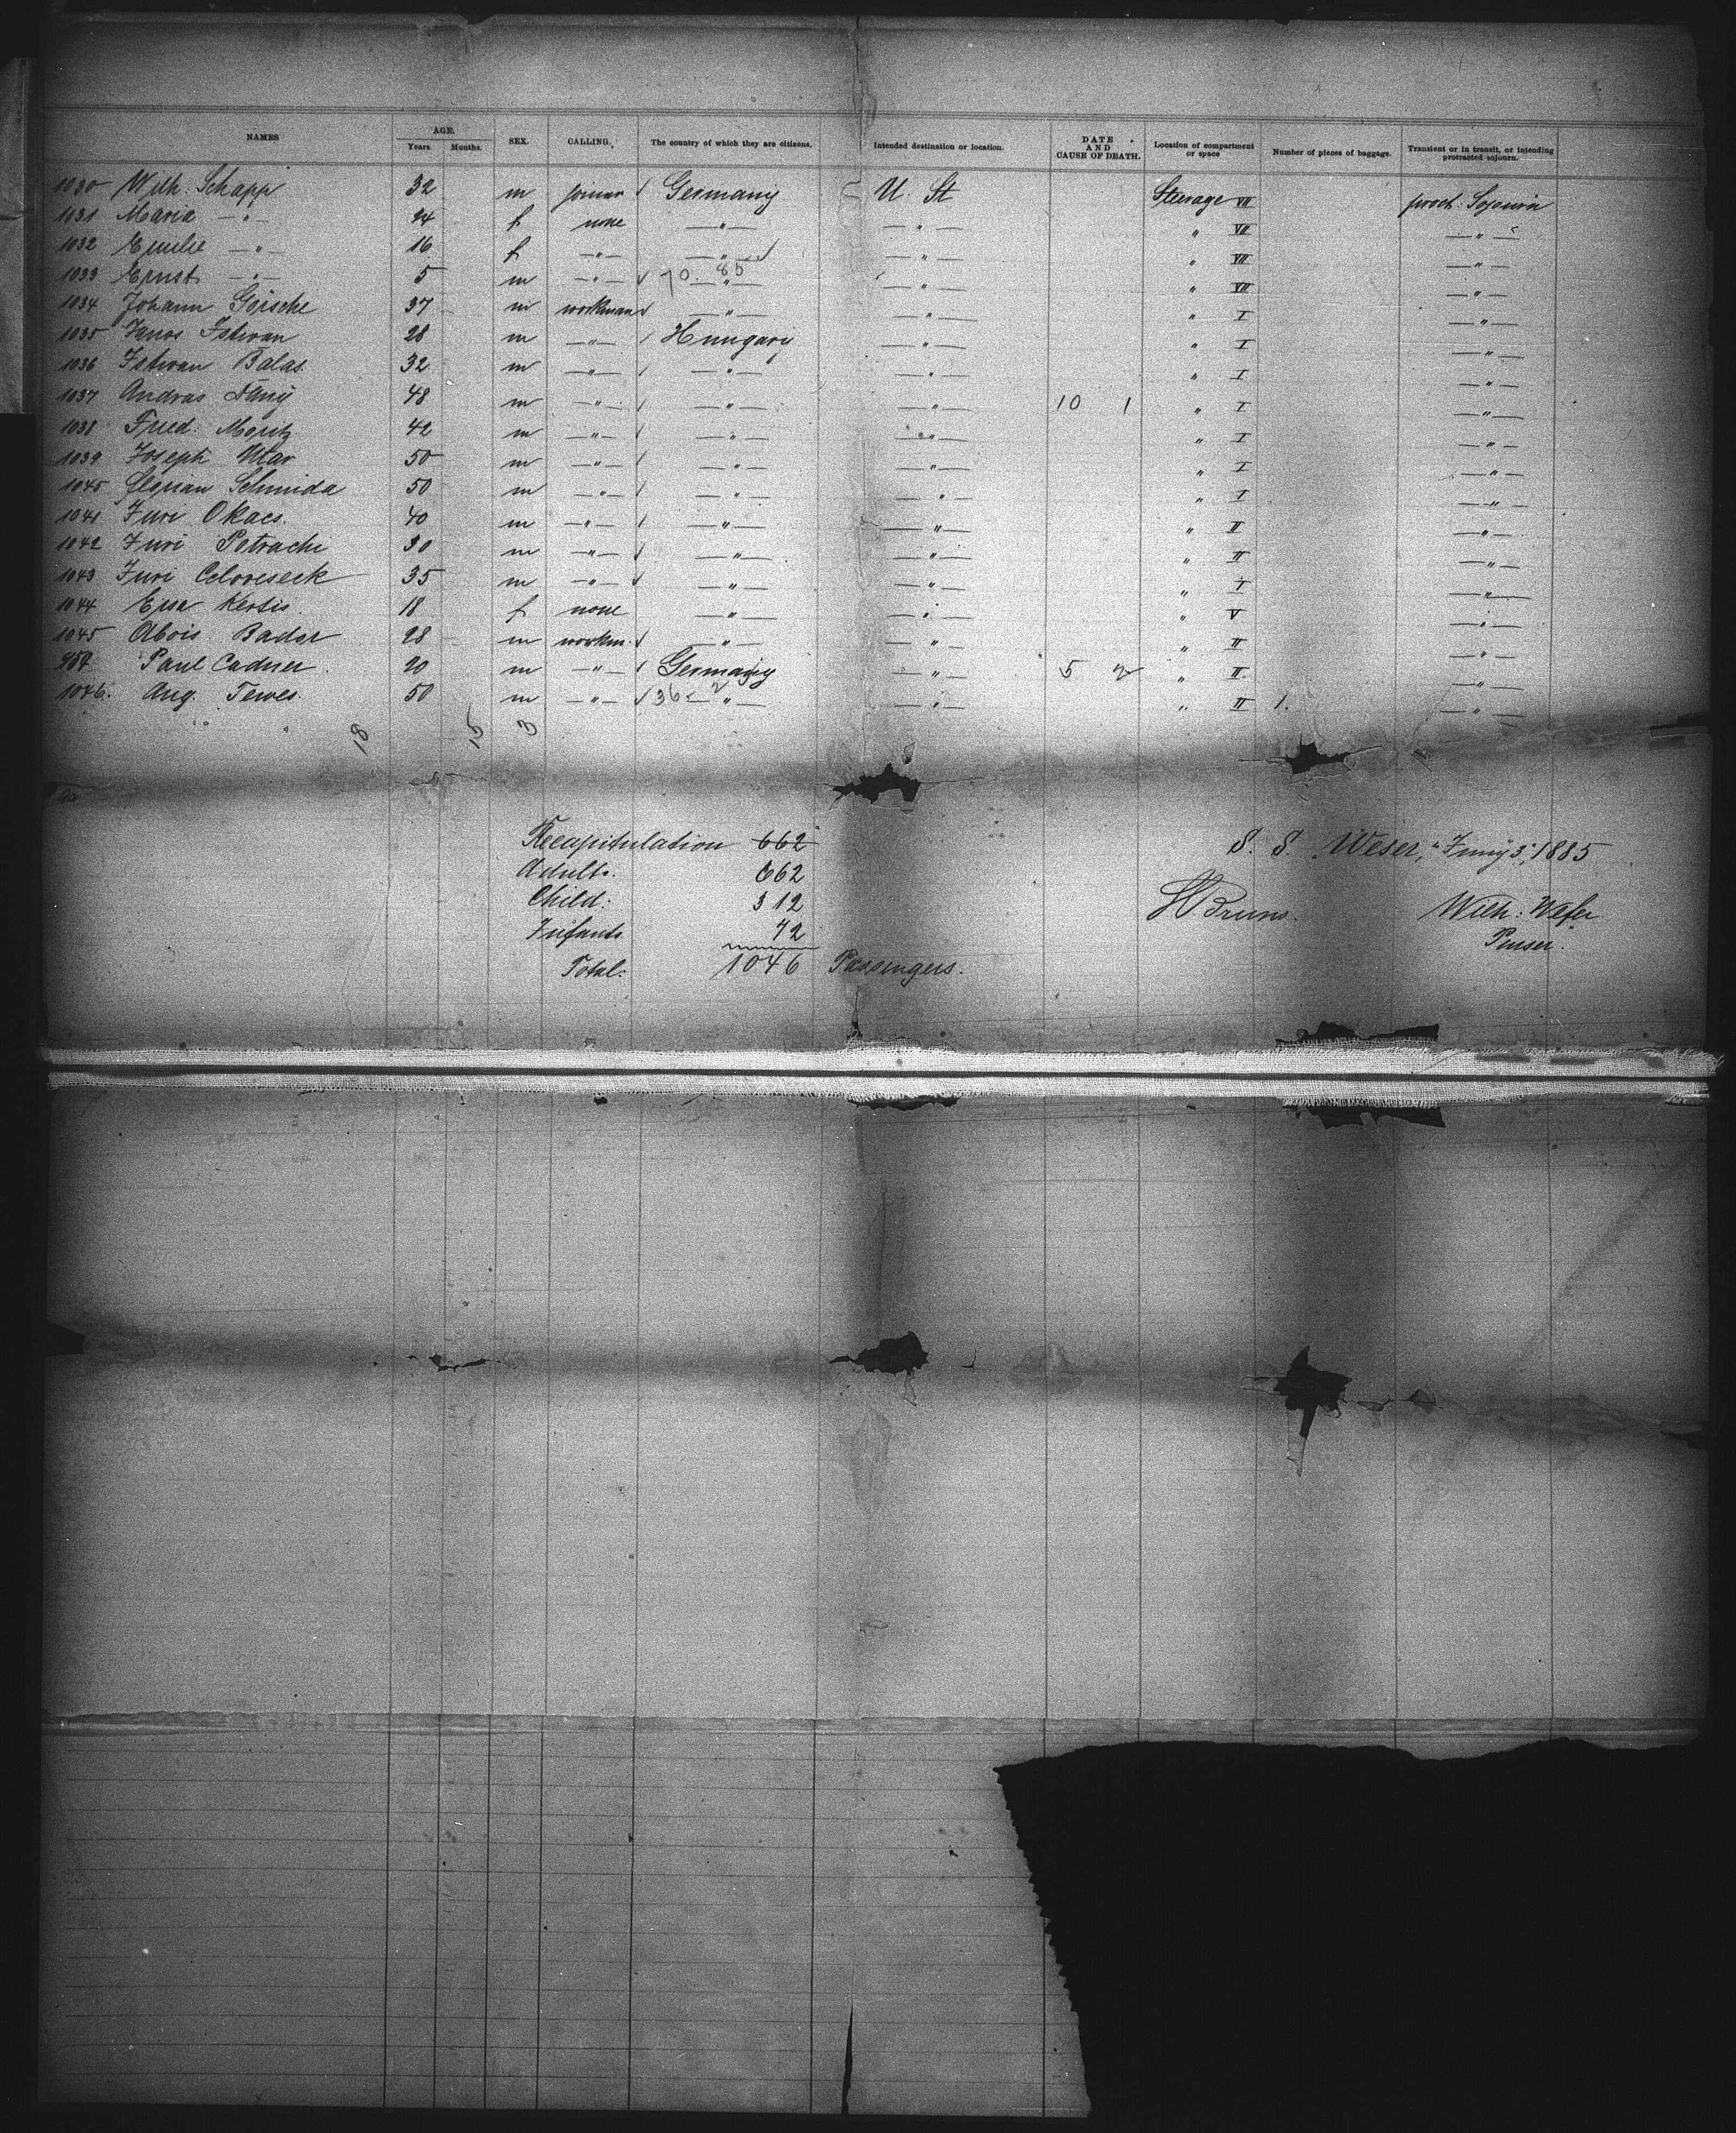 NAMES AGE. Years. Months. SEX. CALLING. The country of which they are citizens. Intended destination or location. DATE AND CAUSE OF DEATH. Location of compartment or space Number of pieces of baggage. Transient or in transit, or intending protracted sojourn.
1030 Wilh. Schappi 32 m joiner √ Germany U. St Steerage VII proct. Sojourn
1031 Maria —"— 24 f none —"— —"— " VII —"—
1032 Emilie —"— 16 f —"— —"— √ —"— " VII —"—
1033 Ernst —"— 5 m —"— √ 70. 85 —"— —"— " VII —"—
1034 Johann Görsche 37 m workman √ —"— —"— " I —"—
1035 Janos Istwan 28 m —"— / Hungary —"— " I —"—
1036 Istwan Balas 32 m —"— / —"— —"— " I —"—
1037 Andras 48 m —"— / —"— —"— 10 1 " I —"—
1038 Fried. Moritz 42 m —"— / —"— —"— " I —"—
1039 Joseph 50 m —"— / —"— —"— " I —"—
1040 Florian Schmida 50 m —"— / —"— —"— " I —"—
1041 Juri Okacs. 40 m —"— / —"— —"— " II —"—
1042 Juri Petrache 30 m —"— √ —"— —"— " II —"—
1043 Juri 35 m —"— √ —"— —"— " I —"—
1044 Kertis. 18 f none —"— —"— " V —"—
1045 Alois Bader 28 m workm. √ —"— —"— " II —"—
Paul Cadner. 20 m —"— √ Germany —"— 5 2 " II. —"—
1046. Aug. Tewes. 50 m —"— √ 36 - 2 —"— —"— " II 1. —"—
18 15 3
Recapitulation 662
Adults. 662
Child: 312
Infants 72
Total: 1046 Passengers.
S. S. "Weser," Juny 3, 1885
H Bruns. Wilh: Wefer
Purser.